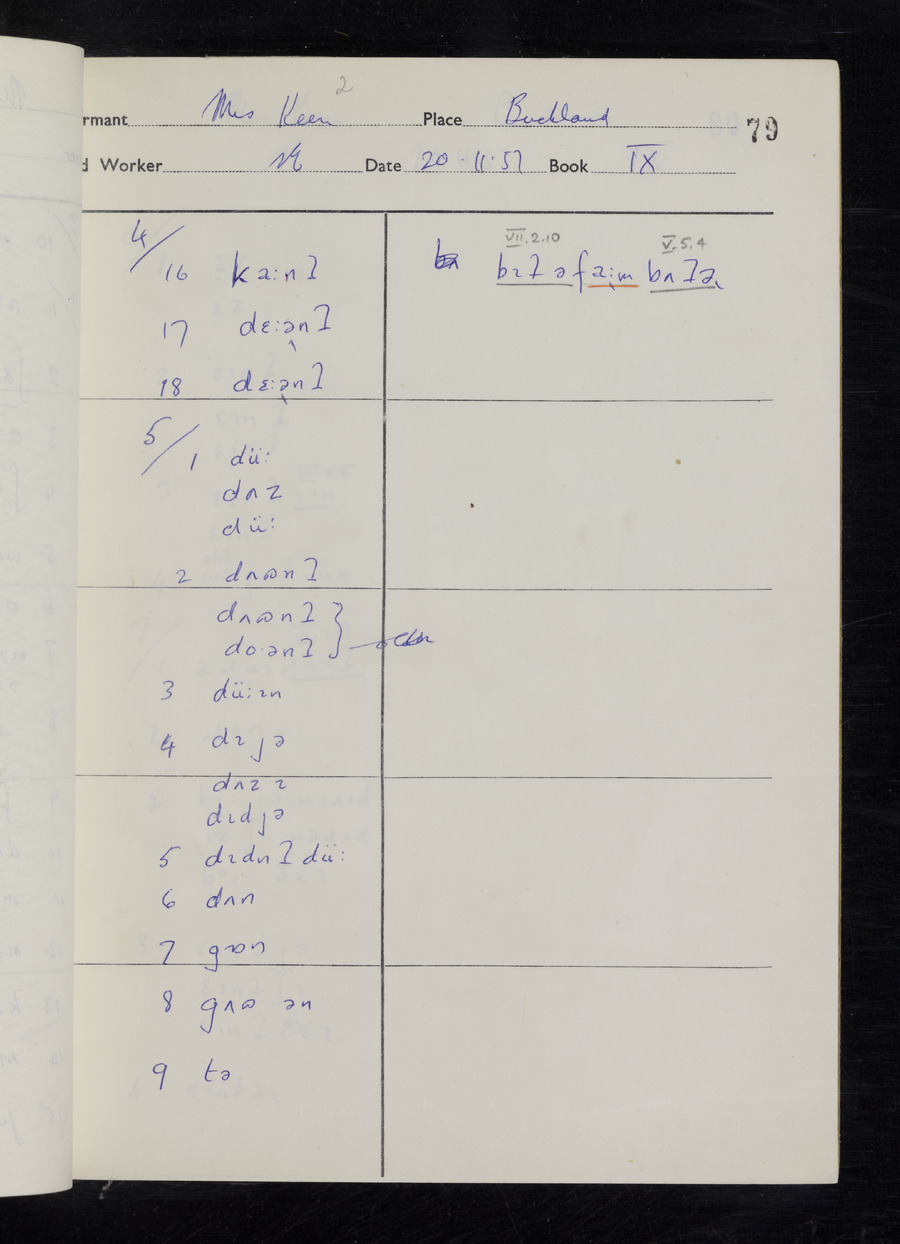 2
rmant Mrs Keen Place Buckland 79
d Worker Date 20·11·57 Book IX
4/
16 kaːnʔ
17 dɛːənʔ
18 dɛːənʔ
VII.2.10 V.5.4
bɪʔ ə faːm bʌʔə
5/
1 düː
dʌz
düː
2 dʌɷnʔ
dʌɷnʔ
doˑənʔ
3 düːɪn
4 dɪɟə
dʌzɪ
dɪdɟə
5 dɪdnʔ düː
6 dʌn
7 gɒn
8 gʌɷ ən
9 tə